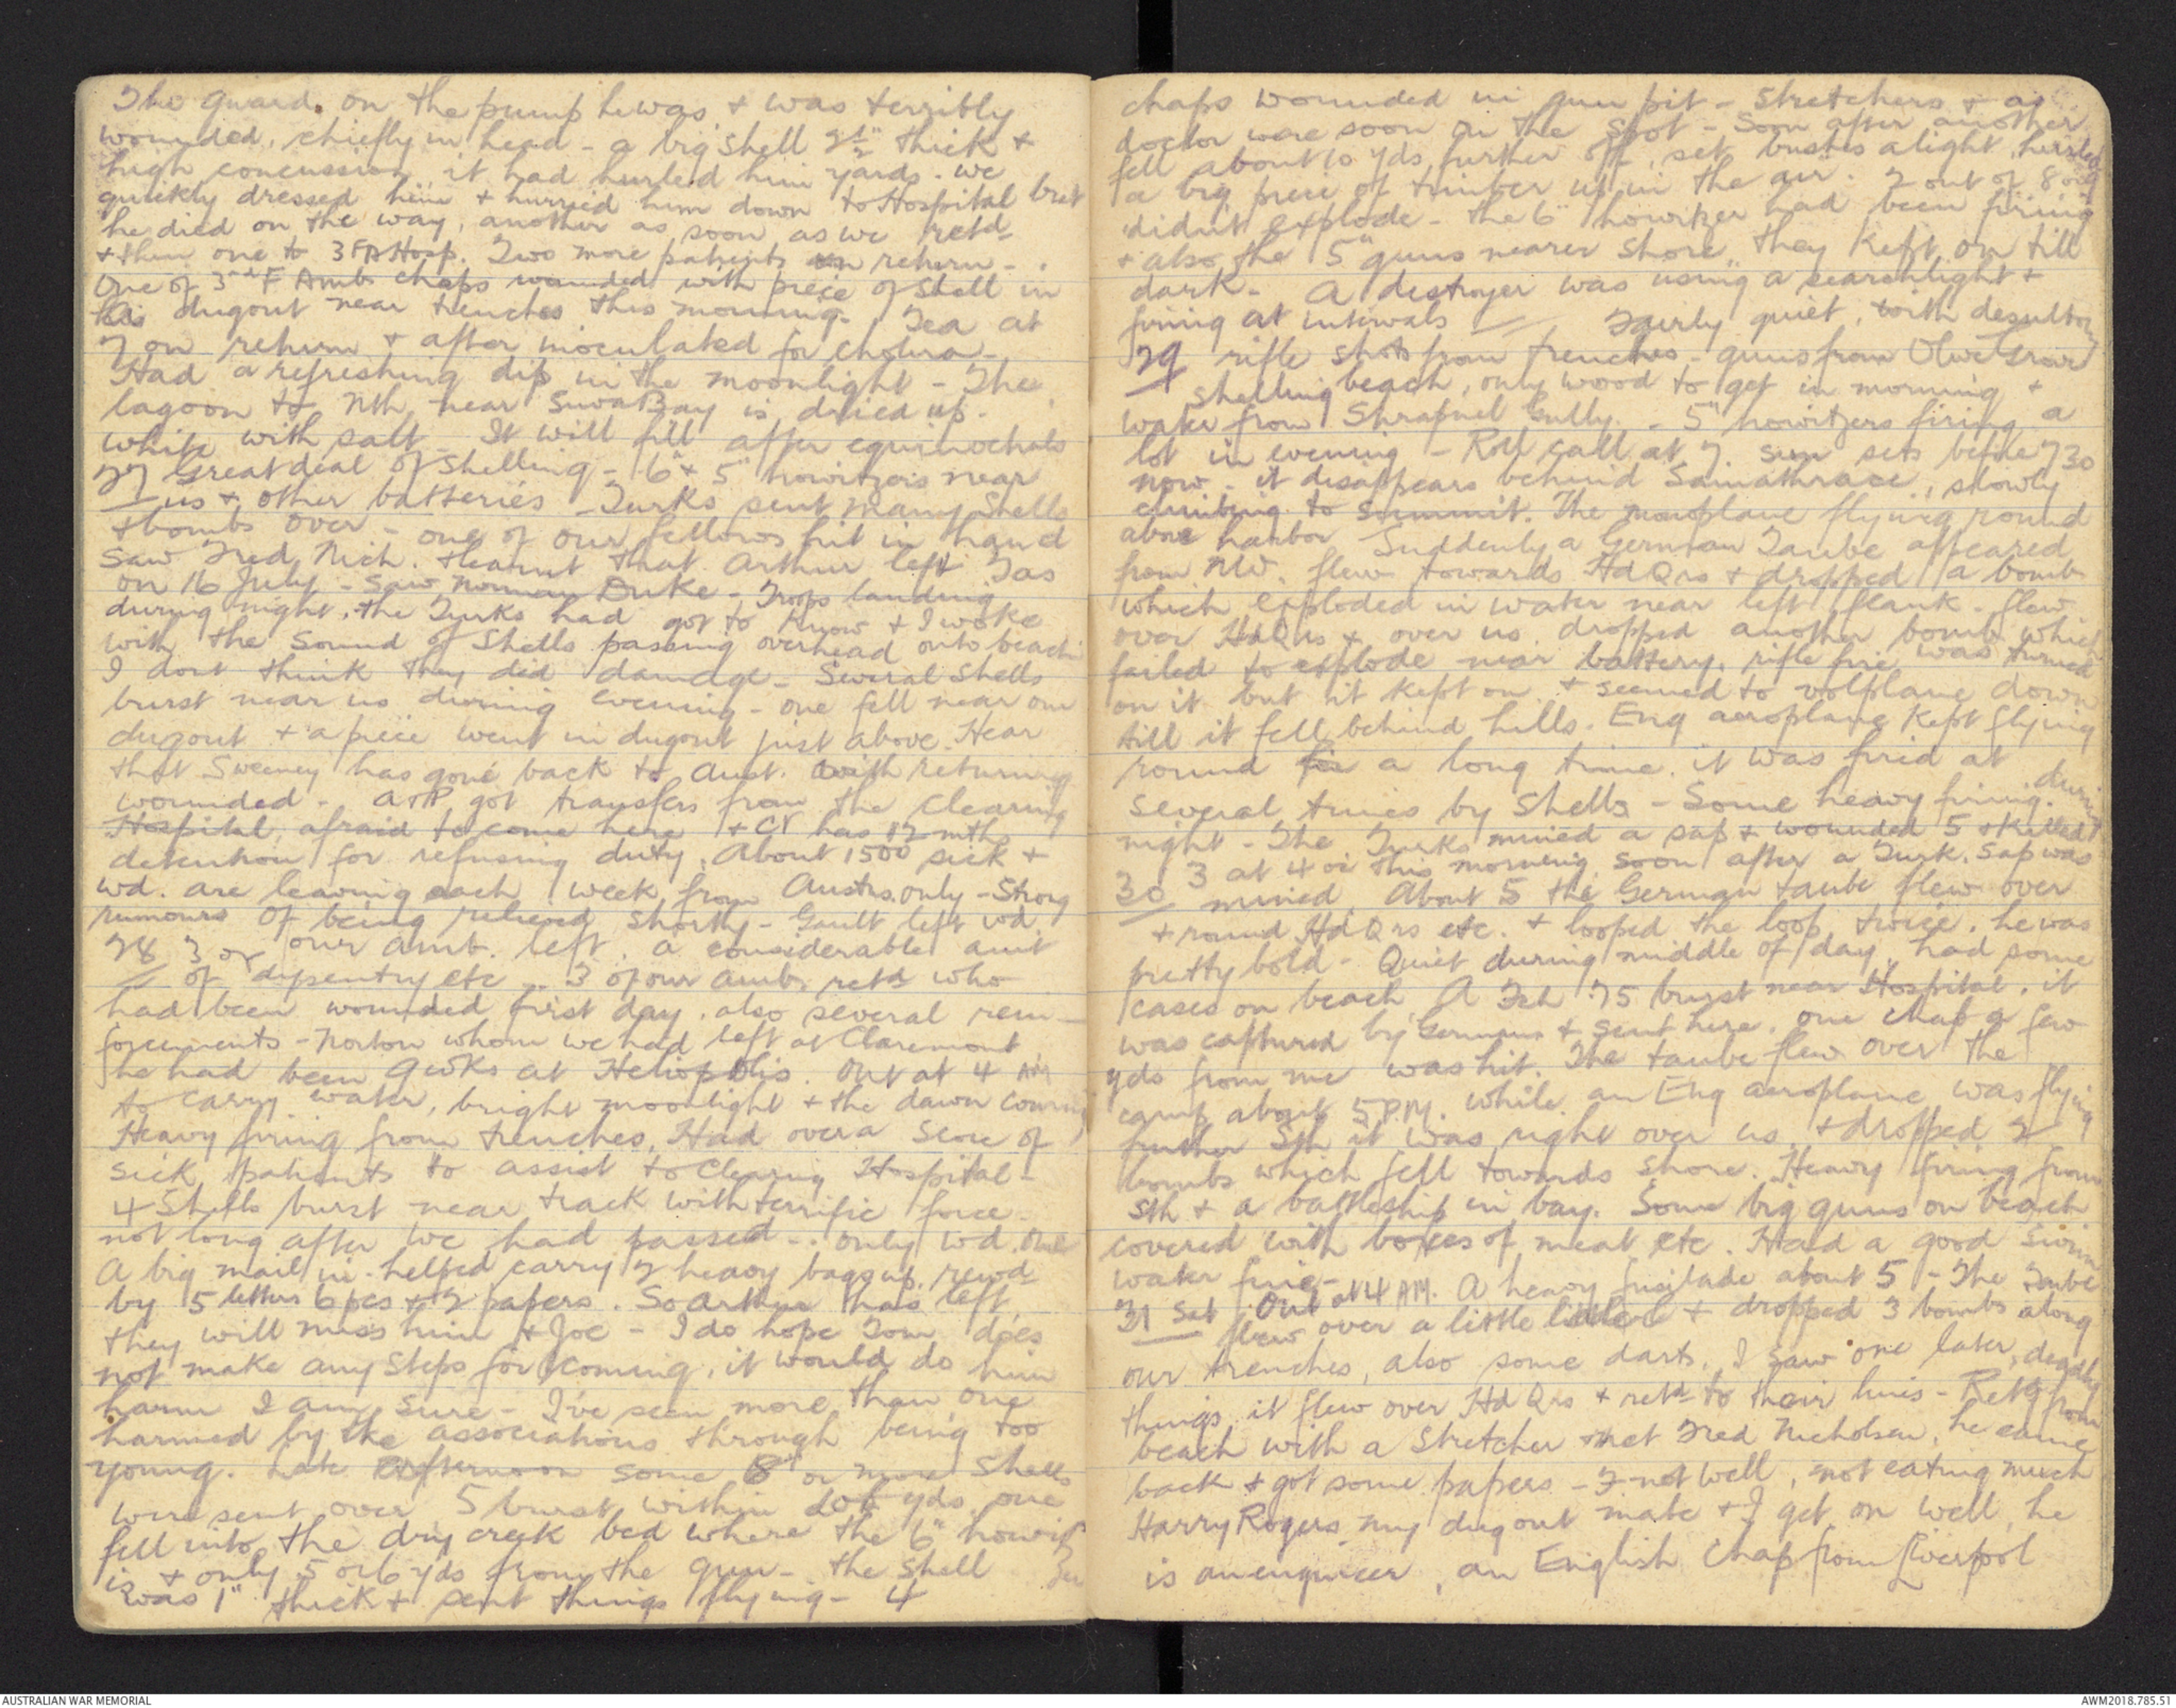 The guard on the pump he was, & was terribly
wounded, chiefly in head - a big shell 2½" thick &
high concussion it had hurled him yards. we
quickly dressed him & hurried him down to Hospital but
he died on the way, another as soon as we retd
& then one to 3 FA Hosp. Two more patients on return -
One of 3rd F Amb chaps wounded with piece of shell in
his dugout near trenches this morning. Tea at
7 on return & after inoculated for cholera -
Had a refreshing dip in the moonlight - The
lagoon to Nth near Suva Bay is dried up.
white with salt It will fill after equinoctials
27 Great deal of shelling - 6" & 5" howitzers near
us & other batteries - Turks sent many shells
& bombs over - one of our fellows hit in hand
Saw Fred Nich. & learnt that Arthur left Tas
on 16 July - saw Norman Duke - Trops landing
during night, the Turks had got to know & I woke
with the sound of shells passing overhead onto beach
I dont think they did damage - Several shells
burst near us during evening - one fell near our
dugout & a piece went in dugout just above. Hear
that Sweeney has gone back to Aust. with returning
wounded - got transfers from the Clearing
Hospital, afraid to come here & has 12 mths
detention for refusing duty. About 1500 sick &
wd. are leaving each week from Austrs. only - Strong
rumours of being relieved shortly - Gault left wd.
28 3 or our amb. left, a considerable amt
of dysentry etc - 3 of our amb. retd who
had been wounded first day, also several rein-
forcements - Norton whom we had left at Claremont
he had been 9 wks at Heliopolis. Out at 4 AM
to carry water, bright moonlight & the dawn coming
Heavy firing from trenches. Had over a score of
sick patients to assist to Clearing Hospital -
4 Shells burst near track with terrific force -
not long after we had passed - only wd. one
A big mail in - helped carry 7 heavy bags up. rewd
by 5 letters 6 pcs & 2 papers. So Arthur has left
they will miss him & Joe - I do hope Tom does
not make any steps for coming, it would do him
harm I am sure - I've seen more than one
harmed by the associations through being too
young. Late afternoon some 6" or more shells
were sent over 5 burst within 100 yds one
fell into the dry creek bed where the 6" howitzer
is & only 5 or 6 yds from the gun - the shell
was 1" thick & sent things flying - 4
chaps wounded in gun pit - Stretchers & a
doctor were soon on the spot - Soon after another
fell about 10 yds further off, set bushes alight, hurled
a big piece of timber up in the air. 2 out of 8 only
didn't explode - the 6" howitzer had been firing
& also the 5" guns nearer shore, they kept on till
dark - A destroyer was using a searchlight &
firing at intervals Fairly quiet, with desultory
29 rifle shots from trenches - guns from Olive Grove
shelling beach, only wood to get in morning &
water from Shrapnel Gully. - 5" howitzers firing a
lot in evening - Roll call at 7. sun sets before 7 30
now - it disappears behind Samathrace, slowly
climbing to summit. The monoplane flying round
above harbor Suddenly a German Taube appeared
from NW. flew towards Hd Qrs & dropped a bomb
which exploded in water near left flank - flew
over Hd Qrs & over us, dropped another bomb which
failed to explode near battery, rifle fire was turned
on it but it kept on & seemed to volplane down
till it fell behind hills. Eng aeroplane kept flying
round for a long time, it was fired at
several times by shells - Some heavy firing during
night - The Turks mined a sap & wounded 5 & killed
30 3 at 4 oc this morning soon after a Turk. sap was
mined. About 5 the German taube flew over
& round Hd Qrs etc. & looped the loop twice, he was
pretty bold - Quiet during middle of day, had some
cases on beach. A Fch .75 burst near Hospital, it
was captured by Germans & sent here. one chap a few
yds from me was hit. The taube flew over the
camp about 5 P.M. while an Eng aeroplane was flying
further Sth it was right over us, & dropped 2
bombs which fell towards shore. Heavy firing from
Sth & a battleship in bay. Some big guns on beach
covered with boxes of meat etc. Had a good swim
water fine -
31 Sat Out at 4 AM. A heavy fusilade about 5 - The Taube
flew over a little & dropped 3 bombs along
our trenches, also some darts, I saw one later, deadly
things, it flew over Hd Qrs & retd to their lines - Retg from
beach with a stretcher met Fred Nicholson, he came
back & got some papers - F not well, not eating much
Harry Rogers my dugout mate & I get on well, he
is an engineer, an English chap from Liverpool
AUSTRALIAN WAR MEMORIAL
AWM2018.785.51